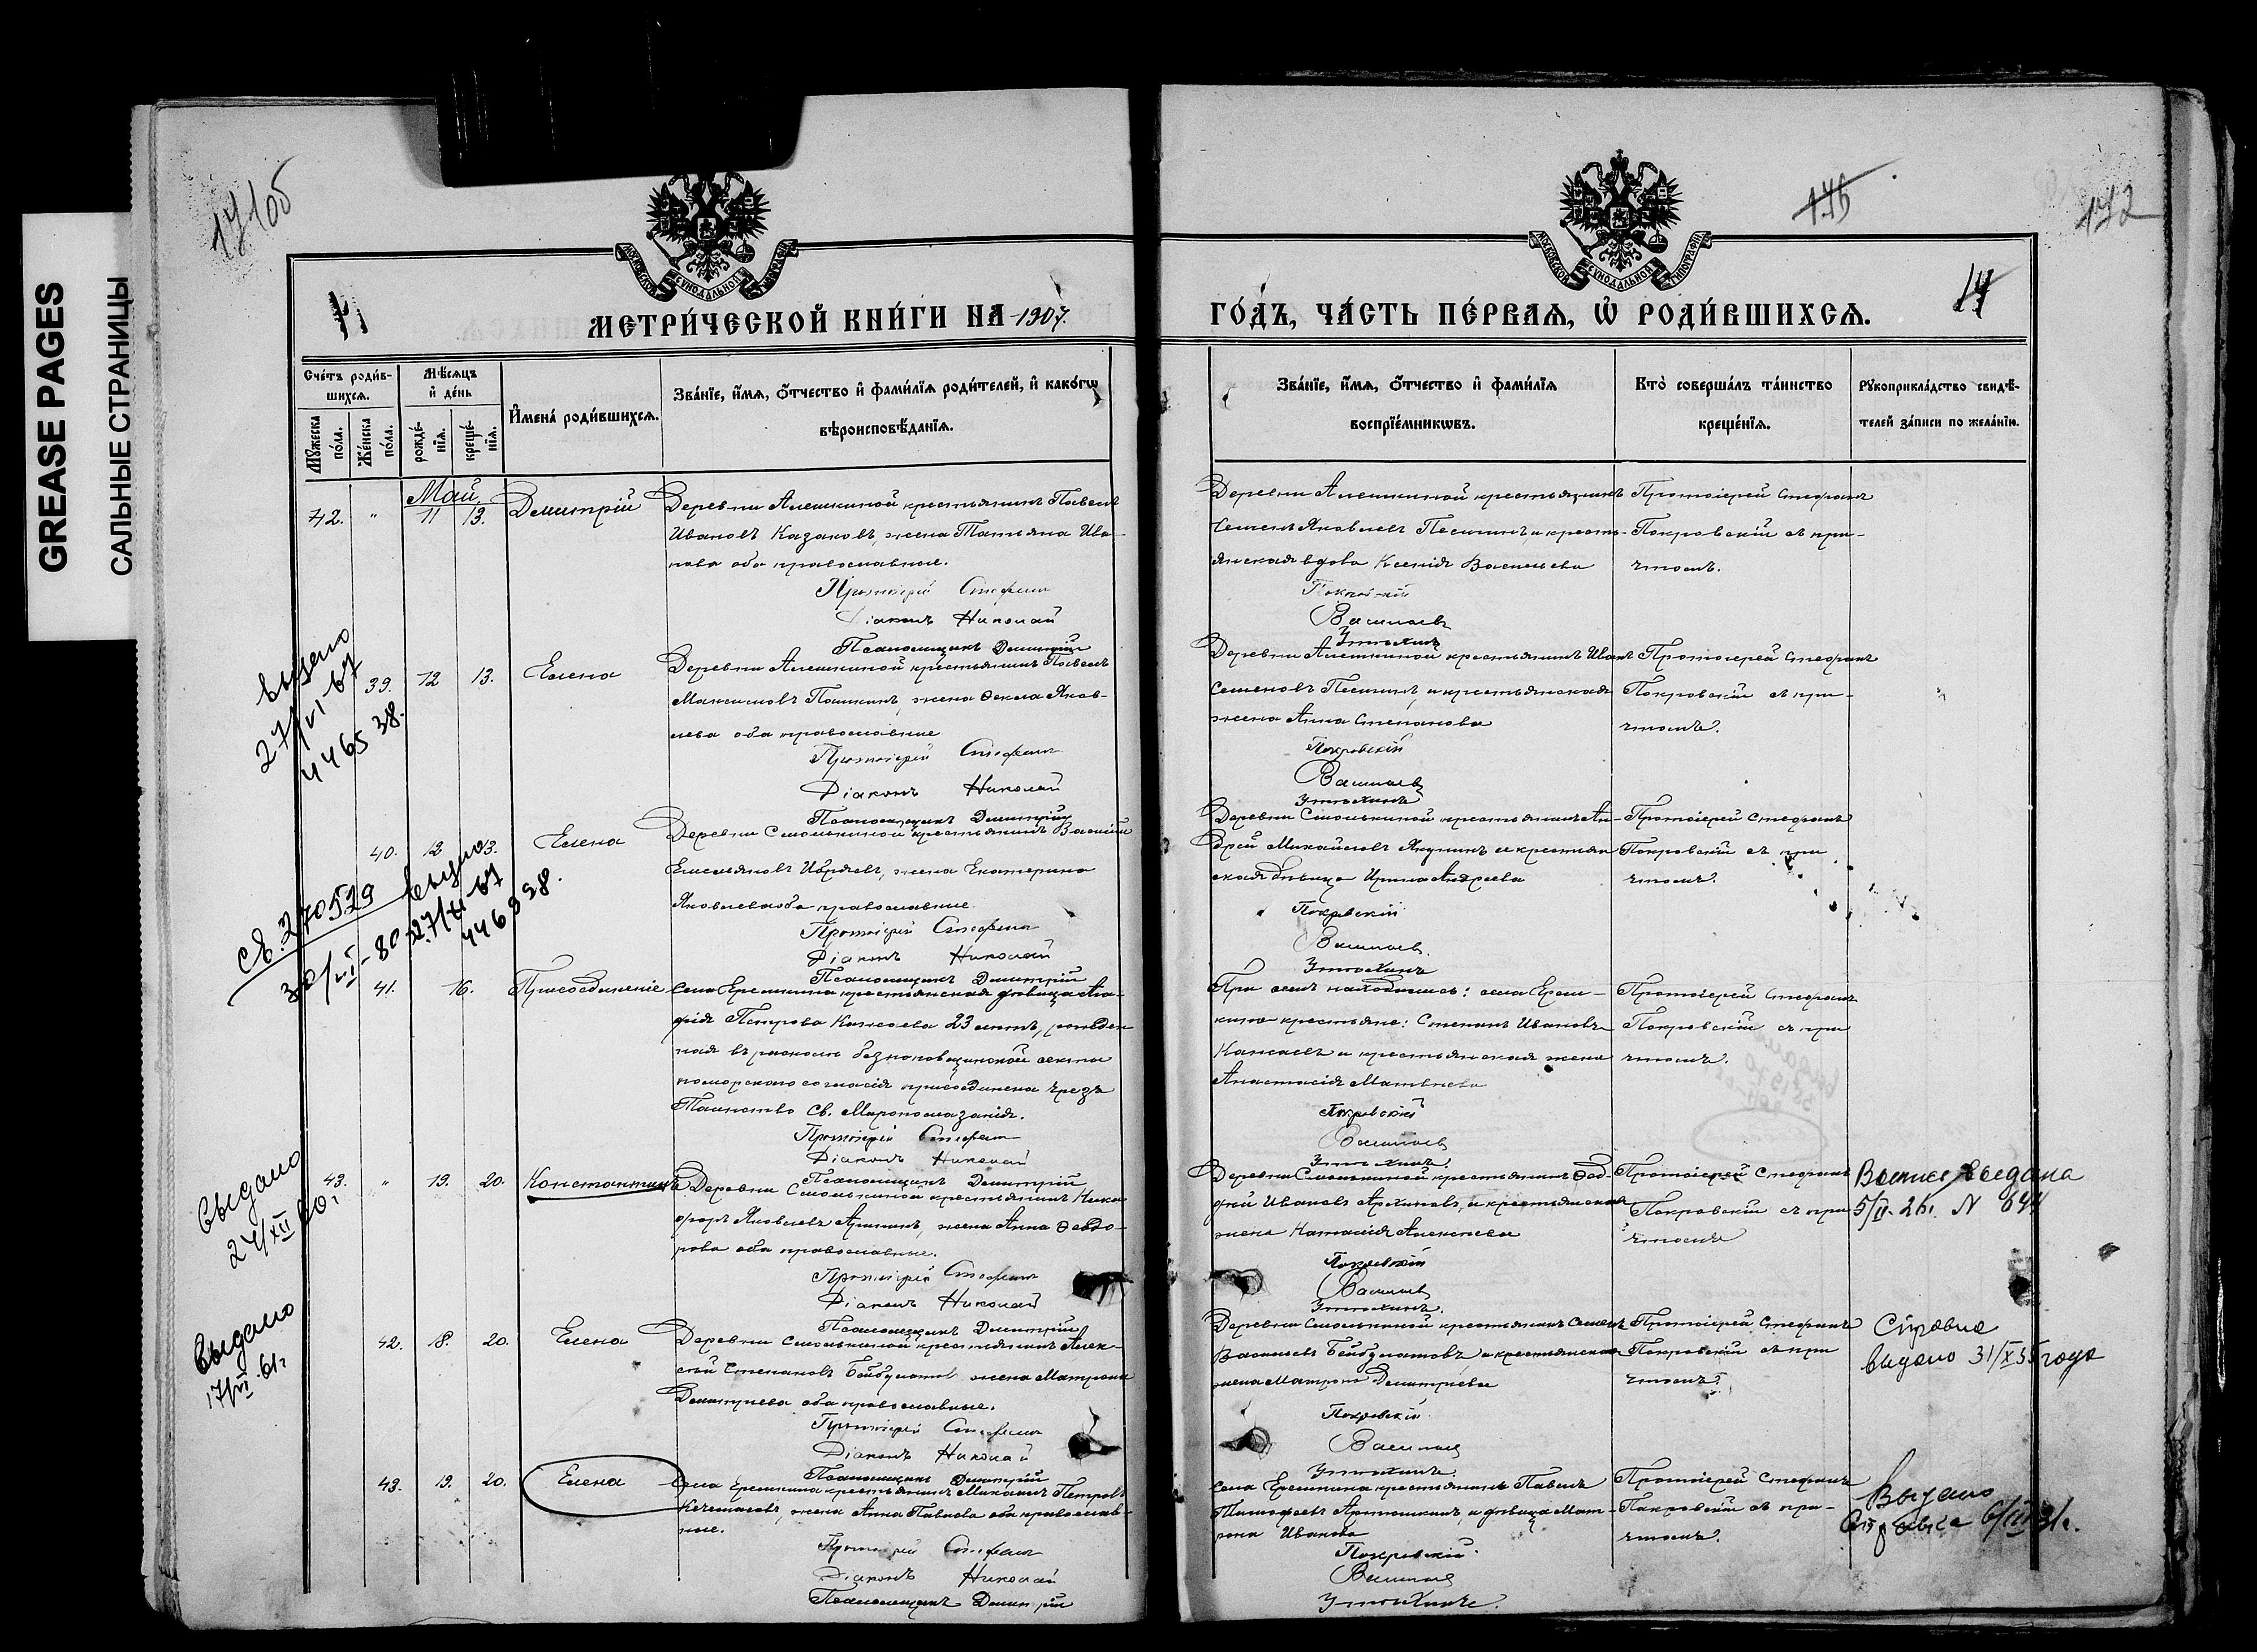 GREASE PAGES
САЛЬНЫЕ СТРАНИЦЫ
171об
175
172
14
МОСКОВСКОЙ СѴНОДАЛЬНОЙ ТИПОГРАФІИ
МОСКОВСКОЙ СѴНОДАЛЬНОЙ ТИПОГРАФІИ
МЕТРИ́ЧЕСКОЙ КНИ́ГИ НА 1907.
ГО́ДЪ, ЧА́СТЬ ПЕ́РВАѦ, Ѡ РОДИ́ВШИХСѦ.
Сче́тъ роди́в-
шихсѧ.
Мꙋ́жеска
по́ла.
Же́нска
по́ла.
Мѣ́сѧцъ
и҆ де́нь
рожде́-
нїѧ.
креще́-
нїѧ.
И҆мена́ роди́вшихсѧ.
Зва́нїе, и҆́мѧ, ѻ҆́тчество и҆ фами́лїѧ роди́телей, и҆ како́гѡ
вѣроисповѣ́данїѧ.
Зва́нїе, и҆́мѧ, ѻ҆́тчество и҆ фами́лїѧ
воспрїе́мникѡвъ.
Кто̀ соверша́лъ та́инство
креще́нїѧ.
Рꙋкоприкла́дство свидѣ́-
телей за́писи по жела́нїю.
Май
42. " 11 13. Димитрій
Деревни Алешкиной крестьянинъ Павелъ
Ивановъ Казаковъ, жена Татьяна Ива-
нова оба православные.
Протоіерей Стефанъ
Діаконъ Николай
Псаломщикъ Димитрій
Деревни Алешкиной крестьянинъ
Семенъ Яковлевъ Песчинъ, и кресть-
янская вдова Ксенія Васильева
Покровскій
Васильев
Утѣхинъ
Протоіерей Стефанъ
Покровскій съ при-
чтомъ.
выдано
27/VI 67
446538.
39. 12 13. Елена
Деревни Алешкиной крестьянинъ Павелъ
Максимовъ Пашкинъ, жена Ѳекла Яков-
лева оба православные
Протоіерей Стефанъ
Діаконъ Николай
Псаломщикъ Димитрій
Деревни Алешкиной крестьянинъ Иванъ
Семеновъ Песчинъ, и крестьянская
жена Анна Степанова
Покровскій
Васильев
Утѣхинъ
Протоіерей Стефанъ
Покровскій съ при-
чтомъ.
40. 12 13. Елена
Деревни Смолькиной крестьянинъ Василій
Емельяновъ, жена Екатерина
Яковлева оба православные
Протоіерей Стефанъ
Діаконъ Николай
Псаломщикъ Димитрій
Деревни Смолькиной крестьянинъ Ан-
дрей Михайловъ Якунинъ и крестьян
ская дѣвица Ирина Андреева
Покровскій
Васильев.
Утѣхинъ
Протоіерей Стефанъ
Покровскій съ при
чтомъ.
св. 270529
выдано
41. 16. Присоединеніе
Села Ерешкина крестьянская дѣвица Ага-
фія Петрова Канаева 23 лѣтъ, рожден
ная въ расколѣ безпоповщинской секты
поморскаго согласія присоединена чрезъ
Таинство Св. Мѵропомазанія.
Протоіерей Стефанъ
Діаконъ Николай
Псаломщикъ Димитрій
При семъ находились: села Ереш-
кина крестьяне: Степанъ Ивановъ
Канаевъ и крестьянская жена
Анастасія Матвѣева
Покровскій
Васильев
Утѣхинъ.
Протоіерей Стефанъ
Покровскій съ при
чтомъ.
выдано
24/XII 60г
43. " 19. 20. Константинъ
Деревни Смолькиной крестьянинъ Ники-
форъ Яковлевъ, жена Анна Ѳедо-
рова оба православные.
Протоіерей Стефанъ
Діаконъ Николай
Псаломщикъ Димитрій
Деревни Смолькиной крестьянинъ Ѳад-
дей Ивановъ Архиповъ, и крестьянская
жена Наталія Алексѣева
Покровскій
Васильев
Утѣхинъ.
Протоіерей Стефанъ
Покровскій съ при
чтомъ
Выпись выдана
5/II-26г. N 644
выдано
17/VI-61г
42. 18. 20. Елена
Деревни Смолькиной крестьянинъ Алек-
сѣй Степановъ Байбулатовъ жена Матрона
Димитріева оба православные.
Протоіерей Стефанъ
Діаконъ Николай
Псаломщикъ Димитрій
Деревни Смолькиной крестьянинъ Семенъ
Васильевъ Байбулатовъ и крестьянская
жена Матрона Димитріева
Покровскій
Васильев
Утѣхинъ.
Протоіерей Стефанъ
Покровскій съ при
чтомъ.
Справка
выдано 31/X 55 года
43. 19. 20. Елена
Села Ерешкина крестьянинъ Михаилъ Петровъ
жена Анна Павлова оба православ-
ные.
Протоіерей Стефанъ
Діаконъ Николай
Псаломщикъ Димитрій
Села Ерешкина крестьянинъ Павелъ
Тимофеевъ Артюшкинъ, и дѣвица Мат-
рона Иванова
Покровскій
Васильев
Утѣхинъ.
Протоіерей Стефанъ
Покровскій съ при-
чтомъ.
Выдано
Справка 6/III 31г.